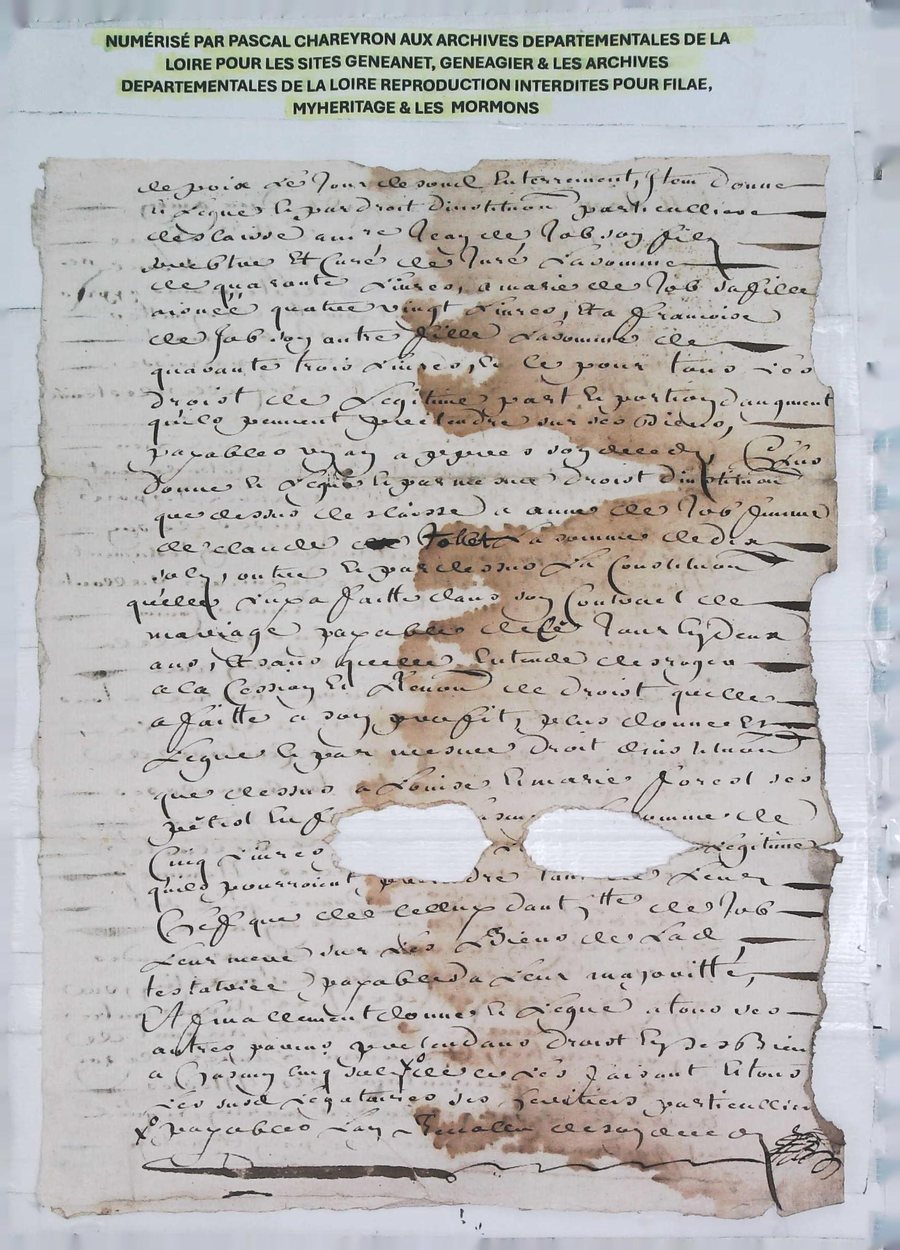 NUMÉRISÉ PAR PASCAL CHAREYRON AUX ARCHIVES DEPARTEMENTALES DE LA
LOIRE POUR LES SITES GENEANET, GENEAGIER & LES ARCHIVES
DEPARTEMENTALES DE LA LOIRE REPRODUCTION INTERDITES POUR FILAE,
MYHERITAGE & LES MORMONS
de poix le Jour de son enterrement, Item donne
legue par droit d'institution particulliere
delaisse a Jean de Job son filz
Et Curé de Juré la somme
de quarante Livres, a marie de Job sa fille
quatre vingt Livres, Et a francoise
de Job son autre fille La somme de
quarante trois Livres, Et ce pour tous Les
Droist de Legitime part Et portion daugment
quils peuvent pretendre sur ses Biens,
payables apres son deced, Plus
Donne Et legue Et par mesme Droist dinstitution
que dessus delaisse a anne de Job femme
de claude La somme de dix
solz, outre Et par dessus La Constitution
quelle Luy a faitte dans son Contract de
mariage payables Jour En Deux
ans, Et sans quelle Entende desroger
a la Cession Et de Droist quelle
a faitte a son profit, plus donne Et
Legue Et par mesme Droist dinstitution
que dessus a Louise Et marie forest ses
somme de
Cinq Livres Legitime
quils pourroient
Chef que de celluy dant de Job
Leur mere sur Les Biens de Lad
testatrice payables a Leur majoritté,
Et finallement donne Et Legue a tous ses
autres parens pretendans Droist En ses Biens
a Chascun cinq solz Les faisant Et tous
Les susd Legataires ses heritiers particulliers
payables Lan de son deced